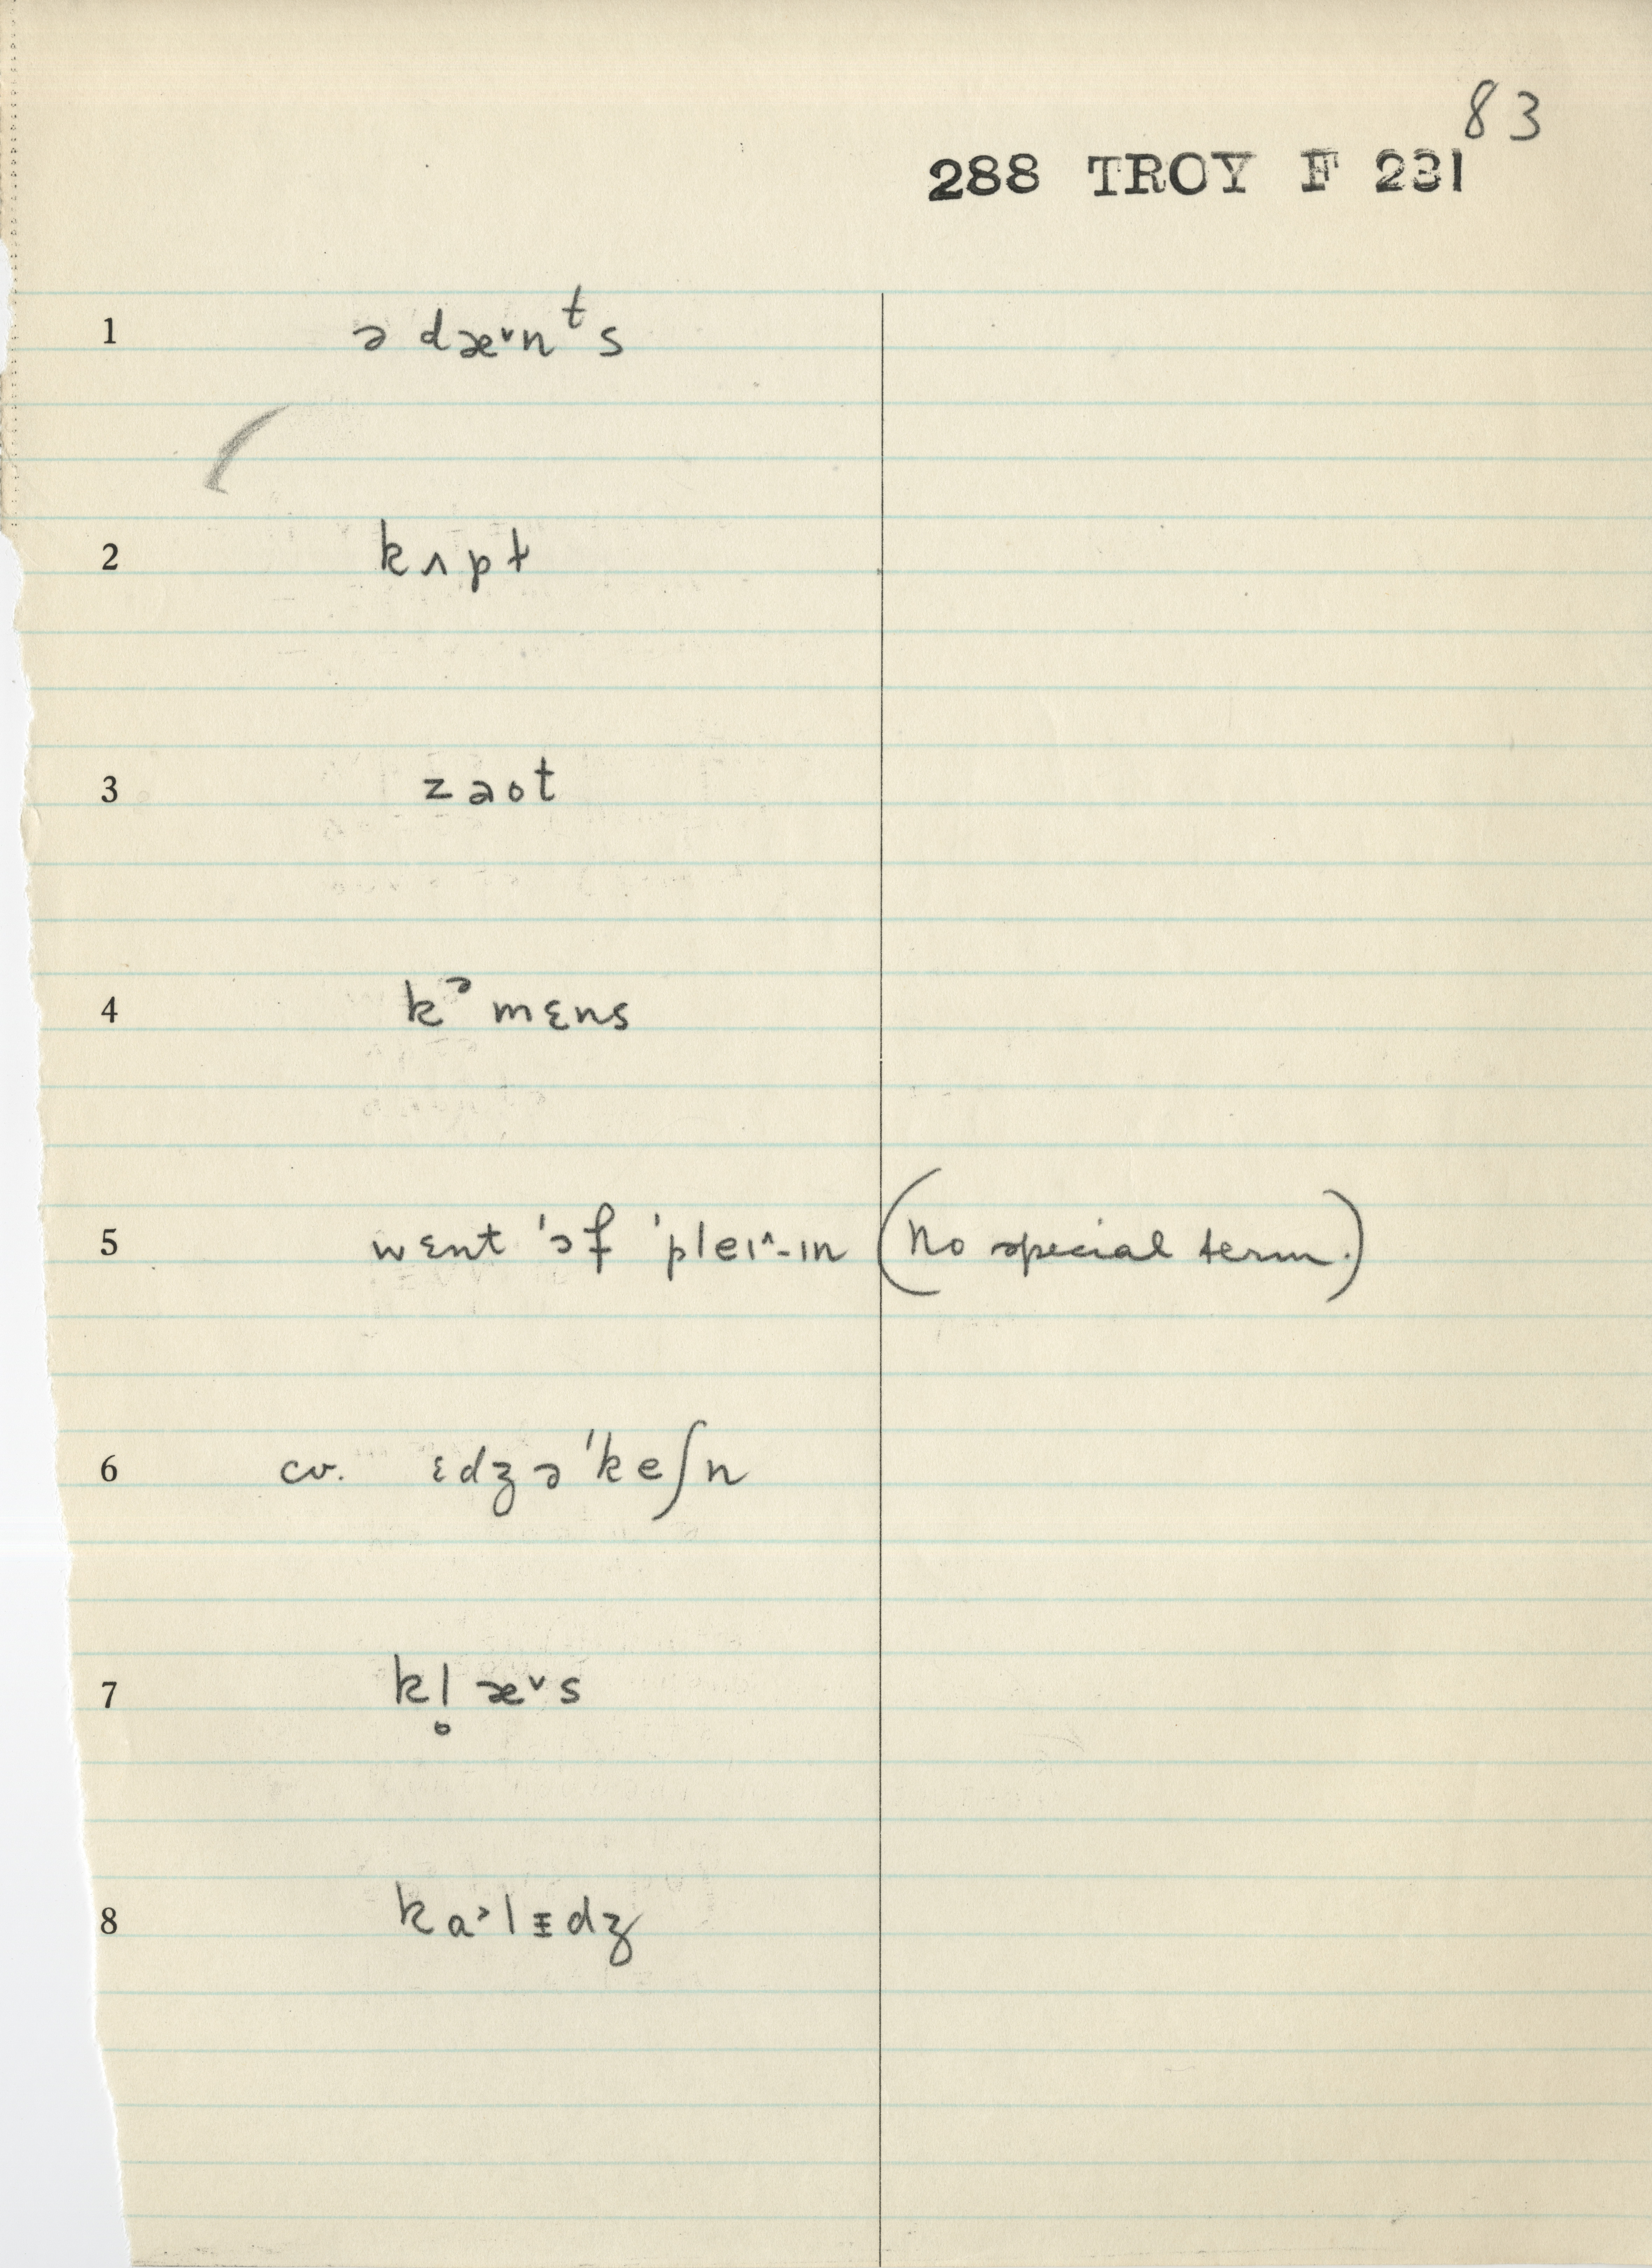 83
288 TROY F 231
1 ə dæ˅nᵗs
2 kʌpt
3 zaot
4 kᵊmɛns
5 wɛnt 'ɔf 'pleɪ^-ɪn (No special term.)
6 cv. ɛdʒə'keʃn
7 kl̥æ˅s
8 ka˃lɪ̵dʒ